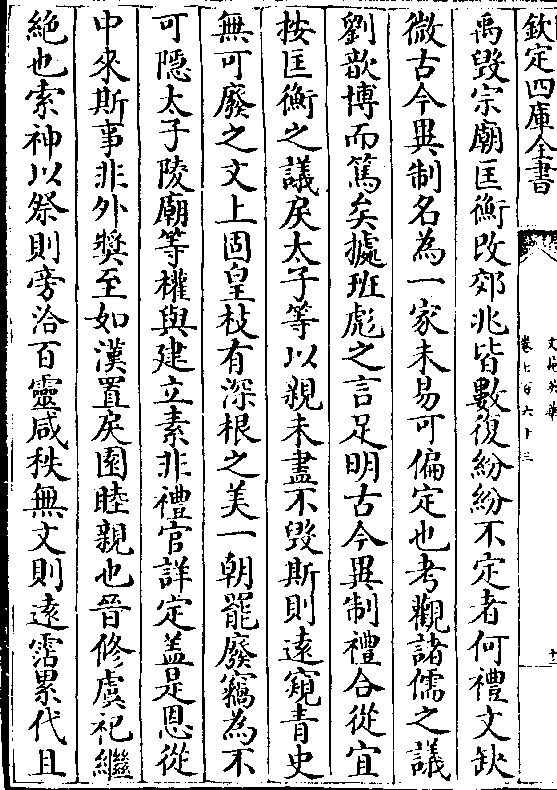 欽定四庫全書
文苑英華
卷七百六十三
十
禹毀宗廟匡衡改郊兆皆數復紛紛不定者何禮文缺
微古今異制名為一家未易可偏定也考觀諸儒之議
劉歆博而篤矣據班彪之言足明古今異制禮合從宜
按匡衡之議戾太子等以親未盡不毀斯則遠窺青史
無可廢之文上固皇枝有深根之美一朝罷廢竊為不
可隱太子陵廟等權與建立素非禮官詳定盖是恩從
中來斯事非外奬至如漢置戾園睦親也晉修虞祀繼
絶也索神以祭則旁洽百靈咸秩無文則遠霑累代且